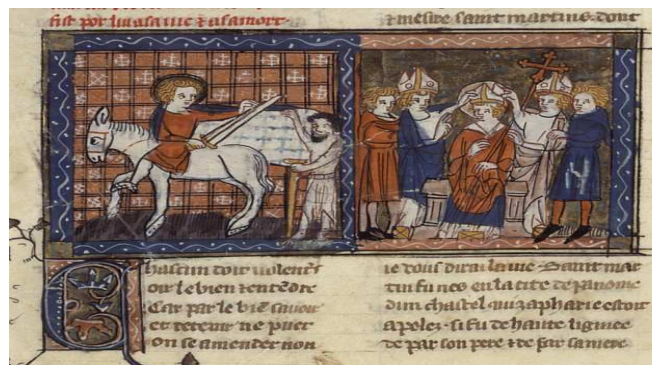 fist por lui a sa uie & a sa mort.
Chascun doit uolentrs
oir le bien & entēdre
Car par le biē sauoir
et retenir ne puet
On se amender non
& mesire saint martins. dont
ie uous dirai la uie. Saint mar
tin fu nes en la cite de panonie
dun chastel qui zapharie estoit
apolez. si fu de haute lignee
de par son pere & de par sa mere